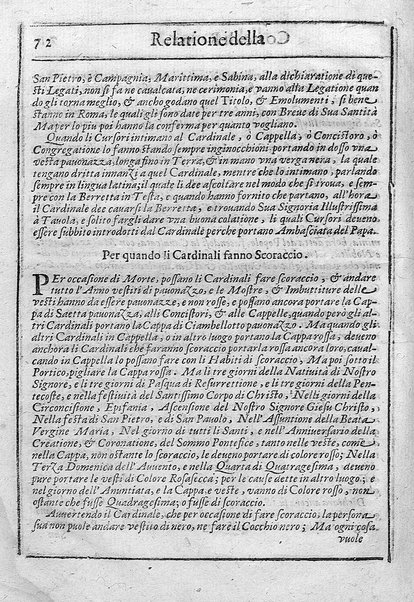 72 Relatione della
San Pietro, è Campagna, Marittima, e Sabina, alla dichiaratione di que-
sti Legati, non si fa ne caualcata, ne cerimonia, e vanno alla Legatione quan
do gli torna meglio, & anchogodano quel Titolo, & Emolumenti, si bene
stanno in Roma, le quali gli sono date per tre anni, con Breue di Sua Santità
Ma per lo piu poi hanno la conferma per quanto vogliano.
Quando li Cursori intimano al Cardinale, ò Cappella, ò Concistoro, ò
Congregatione lo fanno stando sempre inginocchioni portando in dosso vna
vesta pauonazza, longa fino in Terra, & in mano vna verga nera, la quale
tengano dritta innanzi a quel Cardinale, mentre che lo intimano, parlando
sempre in lingua latina, il quale li dee ascoltare nel modo che si troua, e sem-
pre con la Berretta in Testa, e quando hanno fornito che partano, all'hora
il Cardinale dee cauarsi la Berretta, e trouando Sua Signoria Illustrissima
à Tauola, e solito fargli dare vna buona colatione, li quali Cursori deueno
essere subbito introdotti dal Cardinale perche portano Ambasciata del Papa.
Per quando li Cardinali fanno Scoraccio.
PEr occasione di Morte, possano li Cardinali fare scoraccio, & andare
tutto l'Anno vestiti di pauonazzo, e le Mostre, & Imbutture delle
vesti hanno da essere pauonazze, e non rosse, e possano ancora portare la Cap
pa di Saetta pauonazza, alli Concistori, & alle Cappelle, quando però gli al-
tri Cardinali portano la Cappa di Ciambellotto pauonazzo. Ma quando gli
altri Cardinali in Cappella, o in altro luogo portano la Cappa rossa, deueno
anchora li Cardinali che faranno scoraccio portarla rossa ancora loro, caual-
cando in Cappella lo possano fare con li Abiti di scoraccio, Ma poi sotto il
Portico, pigliare la Cappa rossa. Ma li tre giorni della Natiuità di Nostro
Signore, e li tre giorni di Pasqua di Resurrettione, e li tre giorni della Pen-
tecoste, e nella festiuità del Santissimo Corpo di Christo, Nelli giorni della
Circoncisione, Epifania, Ascensione del Nostro Signore Giesu Christo,
Nella festa di San Pietro, e di San Pauolo, Nell'Assuntione della Beata
Vergine Maria, Nel giorno di tutti li Santi, e nell'Anniuersario della
Creatione, & Coronatione, del Sommo Pontefice, tanto nelle veste, come
nella Cappa, non ostante lo scoraccio, le deueno portare di colore rosso; Nella
Terza Domenica dell'Auuento, e nella Quarta di Quatragesima, deueno
pure portare le vesti di Colore Rosasecca; per le cause dette in altro luogo; e
nel giorno dell'Anuntiata, e la Cappa e veste, vanno di Colore rosso, non
ostante che fusse Quadragesima; o fusse di scoraccio.
Auuertendo il Cardinale, che per occasione di fare scoraccio, la persona
sua non puole andare vestito di nero, ne fare il Cocchio nero; Ma ogni cosa
vuole